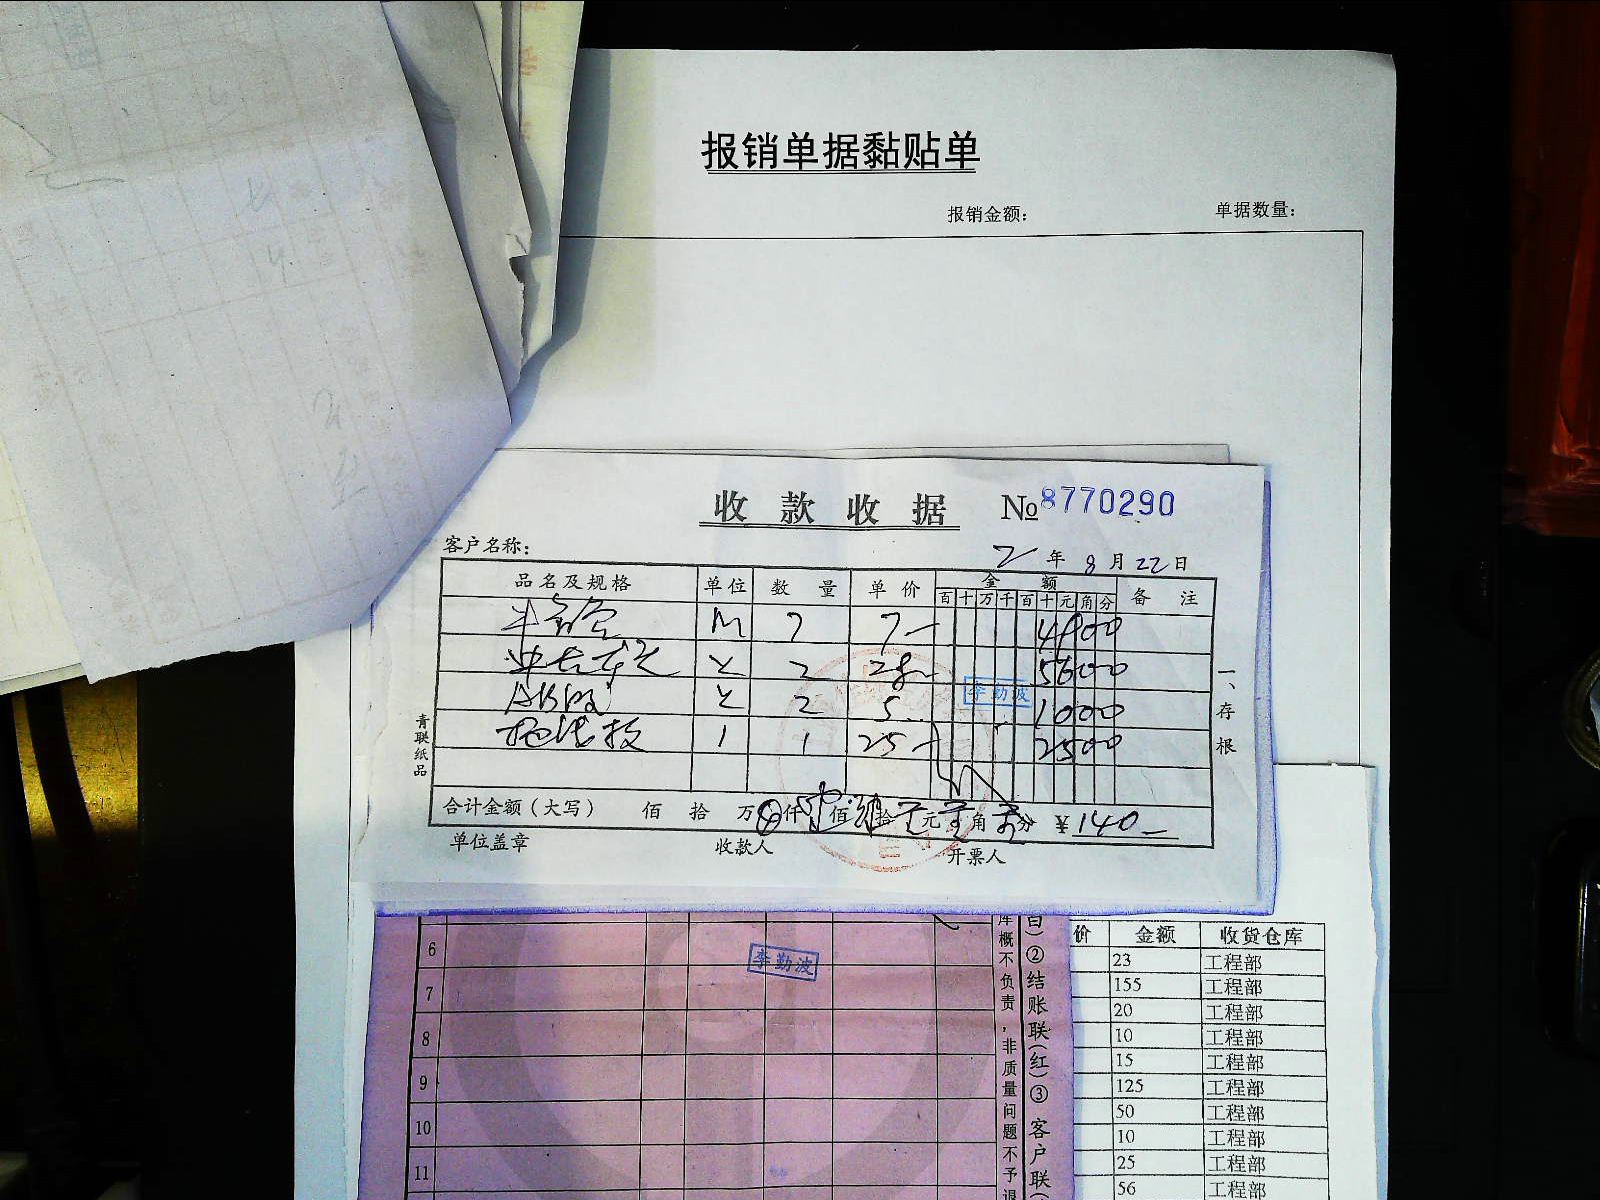 报销单据黏贴单
报销金额： 单据数量：
收款收据 №8770290
客户名称： 年 8 月 22 日
品名及规格 单位 数量 单价 金额 备注
百 十 万 千 百 十 元 角 分
M 7 7- 4900
2 28- 5600
2 5- 1000
1 1 25- 2500
李勤波
一、存根
青联纸品
合计金额（大写） 佰 拾 万 仟 佰 拾 元 角 分 ¥140-
单位盖章 收款人 开票人
6
李勤波
7
8
9
10
11
库概不负责，非质量问题不予退
白）②结账联（红）③客户联（
价 金额 收货仓库
23 工程部
155 工程部
20 工程部
10 工程部
15 工程部
125 工程部
50 工程部
10 工程部
25 工程部
56 工程部